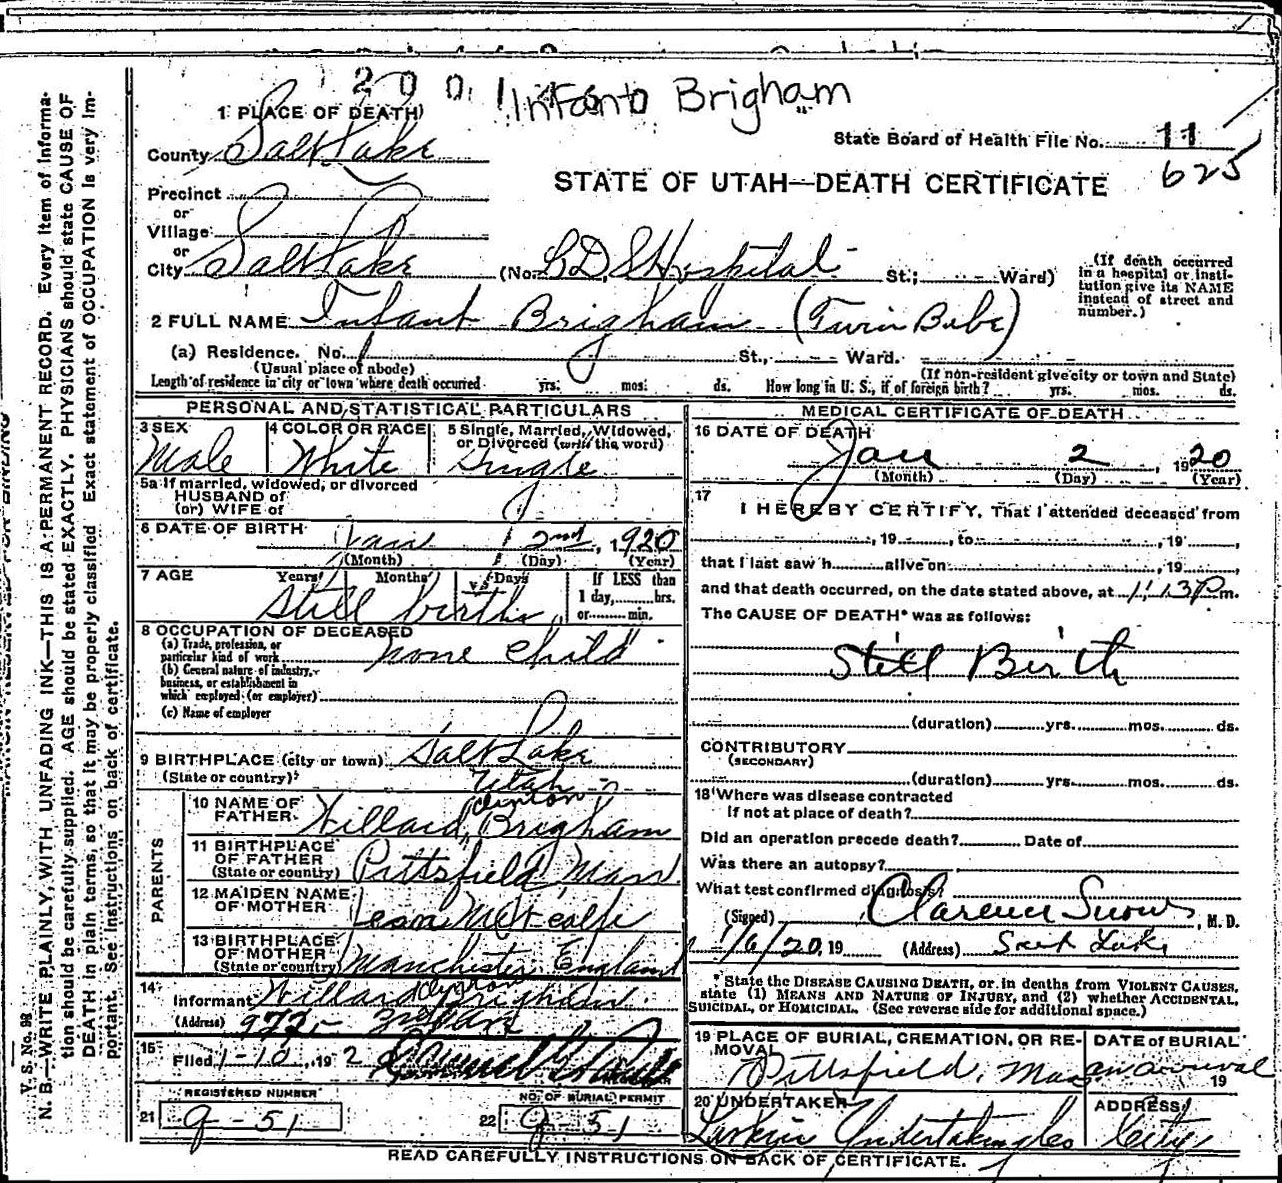 2 0 0
Infant Brigham
1 PLACE OF DEATH
State Board of Health File No. 11
625
County Salt Lake
STATE OF UTAH—DEATH CERTIFICATE
Precinct
or
Village
or
City Salt Lake (No. L.D.S Hospital St.; Ward)
(If death occurred in a hospital or insti-
tution give its NAME
instead of street and
number.)
2 FULL NAME Infant Brigham (Twin Babe)
(a) Residence. No. St., Ward.
(Usual place of abode) (If non-resident give city or town and State)
Length of residence in city or town where death occurred yrs. mos. ds. How long in U. S., if of foreign birth? yrs. mos. ds.
PERSONAL AND STATISTICAL PARTICULARS
3 SEX 4 COLOR OR RACE 5 Single, Married, Widowed,
or Divorced (write the word)
Male White Single
5a If married, widowed, or divorced
HUSBAND of
(or) WIFE of
6 DATE OF BIRTH Jan 2nd, 1920
(Month) (Day) (Year)
7 AGE Years Months Days If LESS than
1 day, hrs.
or min.
Still birth
8 OCCUPATION OF DECEASED
(a) Trade, profession, or
particular kind of work none child
(b) General nature of industry,
business, or establishment in
which employed (or employer)
(c) Name of employer
9 BIRTHPLACE (city or town) Salt Lake
(State or country) Utah
PARENTS
10 NAME OF
FATHER Willard Clinton Brigham
11 BIRTHPLACE
OF FATHER
(State or country) Pittsfield Mass.
12 MAIDEN NAME
OF MOTHER Leona Metcalfe
13 BIRTHPLACE
OF MOTHER
(State or country) Manchester England
14
Informant Willard Clinton Brigham
(Address) 977
15
Filed 1-10, 192
REGISTERED NUMBER
21 9-51
NO. OF BURIAL PERMIT
22 9-51
MEDICAL CERTIFICATE OF DEATH
16 DATE OF DEATH
Jan 2, 1920
(Month) (Day) (Year)
17
I HEREBY CERTIFY, That I attended deceased from
, 19 , to , 19 ,
that I last saw h alive on , 19 ,
and that death occurred, on the date stated above, at 1:13 P m.
The CAUSE OF DEATH* was as follows:
Still Birth
(duration) yrs. mos. ds.
CONTRIBUTORY
(SECONDARY)
(duration) yrs. mos. ds.
18 Where was disease contracted
If not at place of death?
Did an operation precede death? Date of
Was there an autopsy?
What test confirmed diagnosis?
(Signed) Clarence Snow, M. D.
1/6/20, 19 (Address) Salt Lake
*State the DISEASE CAUSING DEATH, or in deaths from VIOLENT CAUSES,
state (1) MEANS AND NATURE OF INJURY, and (2) whether ACCIDENTAL,
SUICIDAL, or HOMICIDAL. (See reverse side for additional space.)
19 PLACE OF BURIAL, CREMATION, OR RE-
MOVAL
Pittsfield, Mass
DATE of BURIAL
on arrival 19
20 UNDERTAKER
Larkin Undertaking Co
ADDRESS
City
READ CAREFULLY INSTRUCTIONS ON BACK OF CERTIFICATE.
V. S. No. 98
N. B.—WRITE PLAINLY, WITH UNFADING INK—THIS IS A PERMANENT RECORD. Every item of informa-
tion should be carefully supplied. AGE should be stated EXACTLY. PHYSICIANS should state CAUSE OF
DEATH in plain terms, so that it may be properly classified. Exact statement of OCCUPATION is very im-
portant. See instructions on back of certificate.